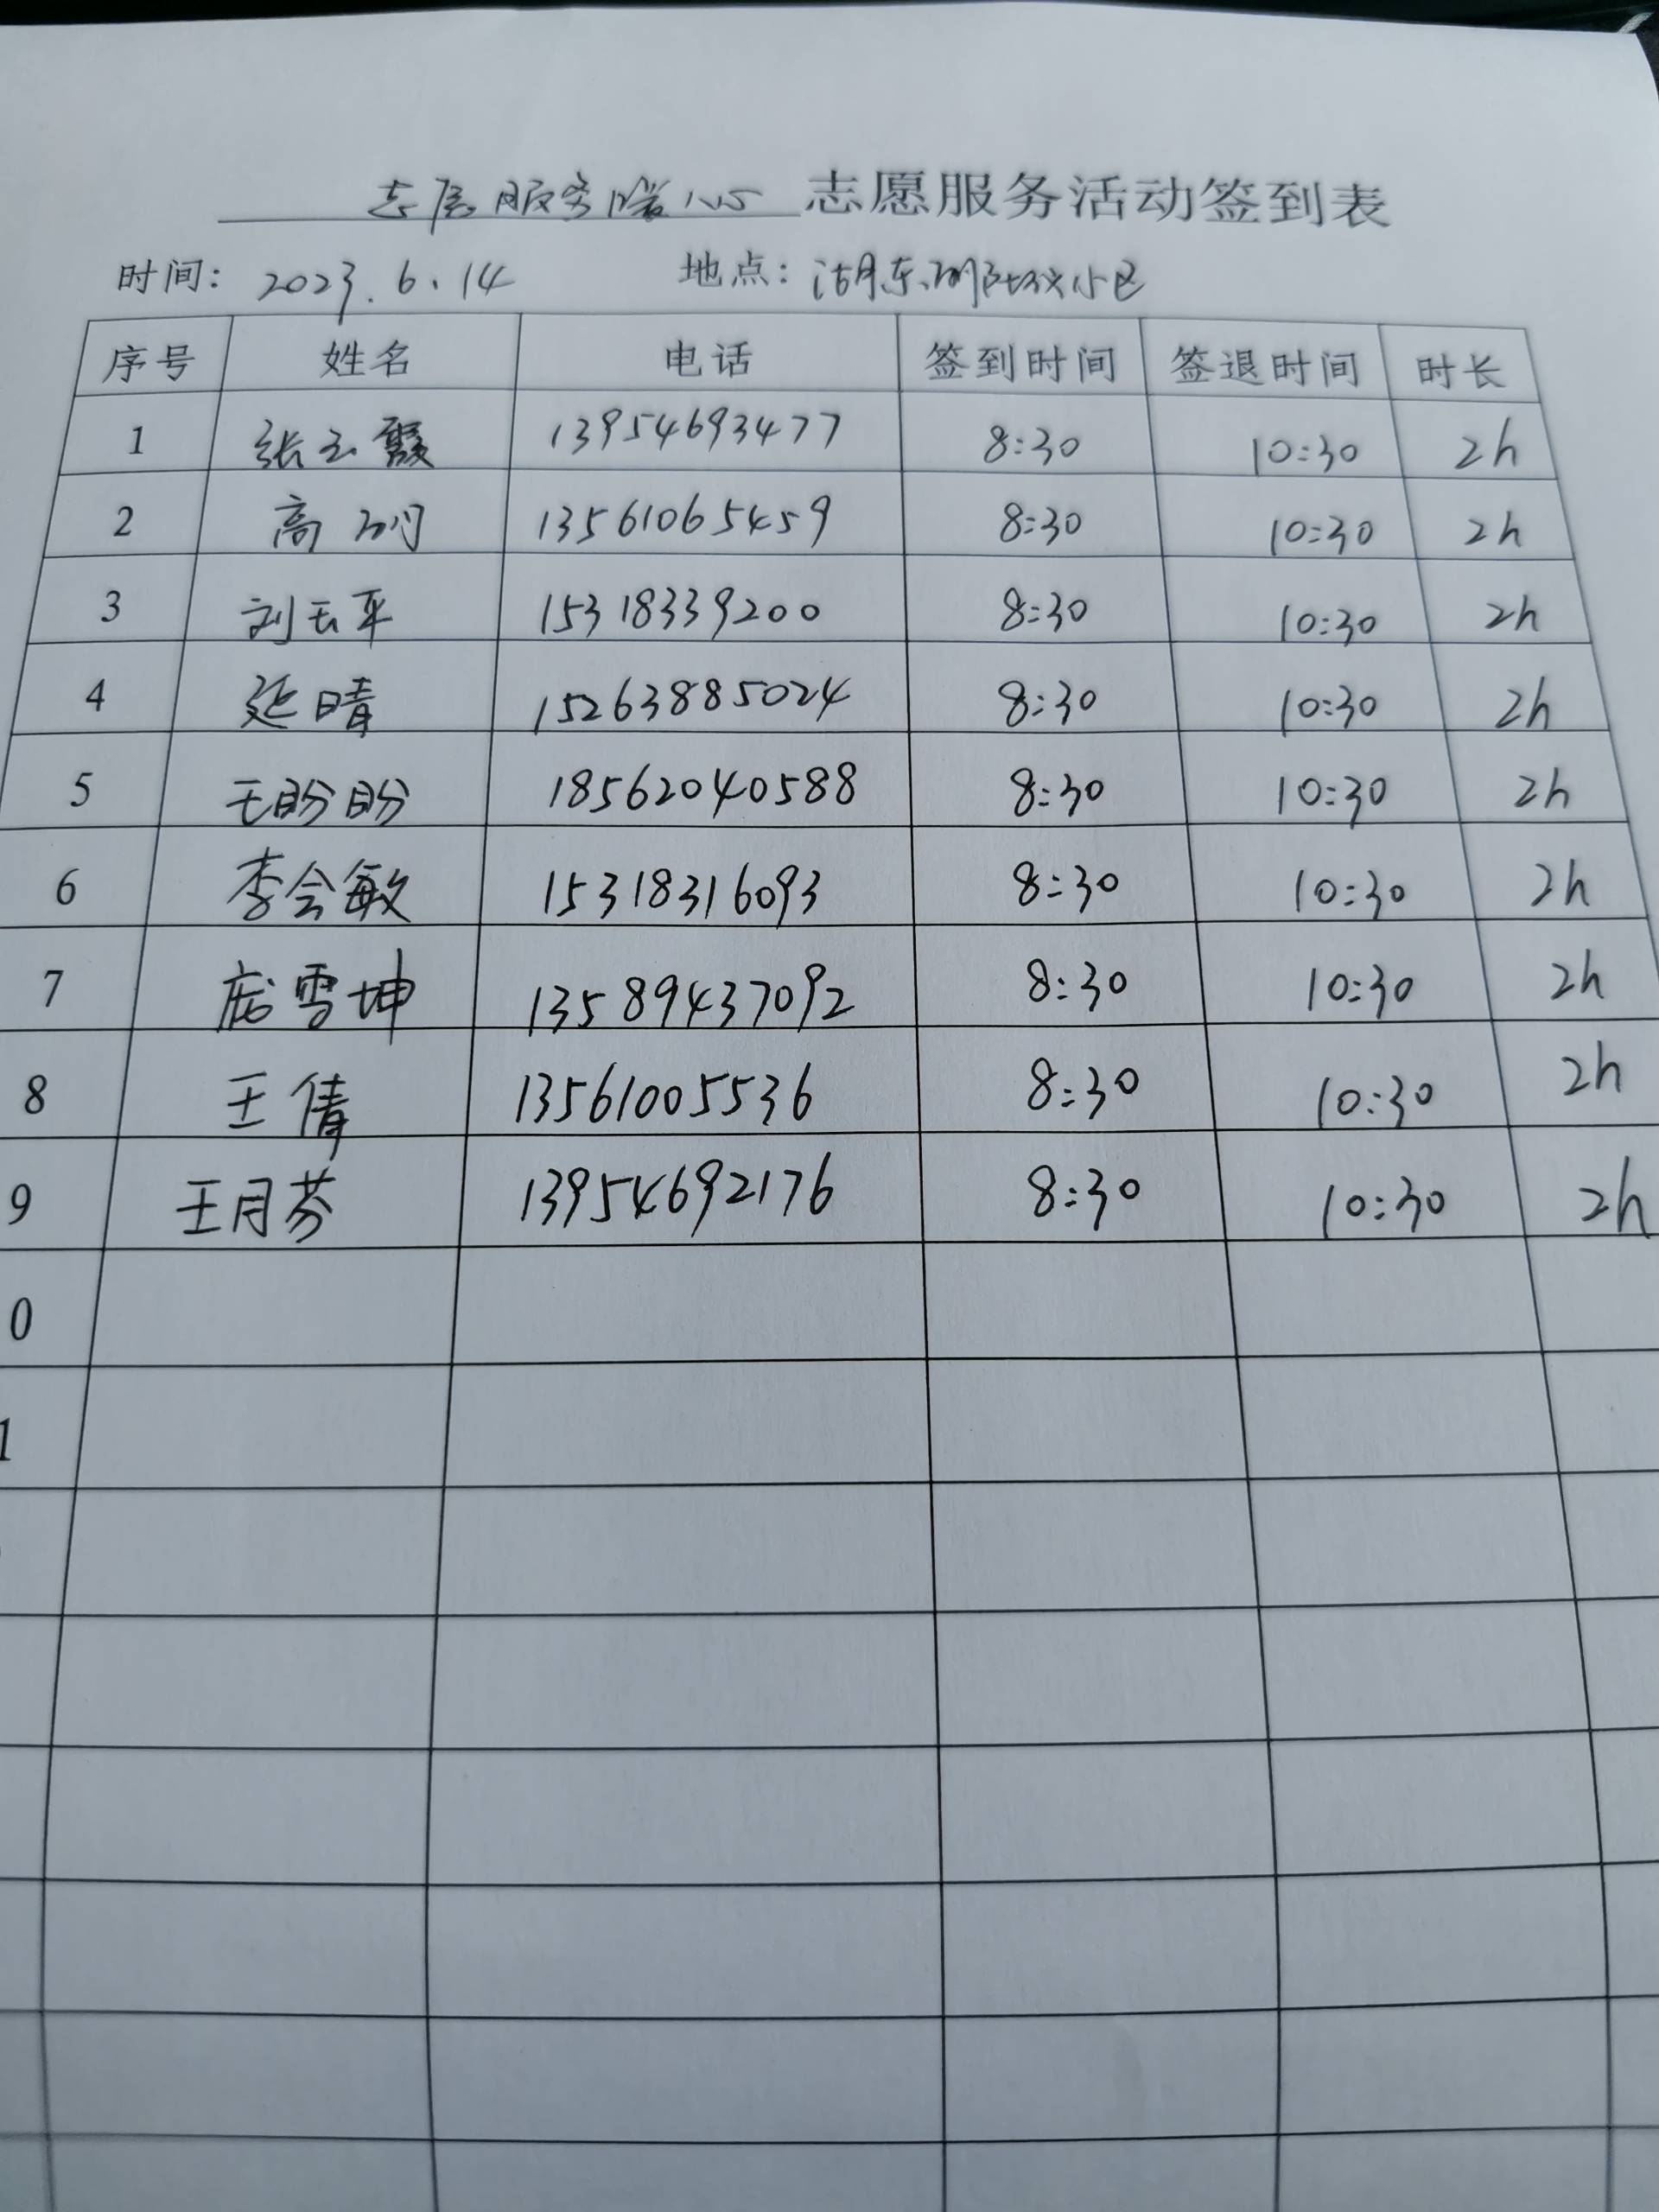 志愿服务暖人心 志愿服务活动签到表
时间: 2023.6.14 地点: 小区
序号 姓名 电话 签到时间 签退时间 时长
1 张云霞 13954693477 8:30 10:30 2h
2 高 13561065459 8:30 10:30 2h
3 刘云平 15318339200 8:30 10:30 2h
4 延晴 15263885024 8:30 10:30 2h
5 王盼盼 18562040588 8:30 10:30 2h
6 李会敏 15318316093 8:30 10:30 2h
7 庞雪坤 13589437092 8:30 10:30 2h
8 王倩 13561005536 8:30 10:30 2h
9 王月芬 13954692176 8:30 10:30 2h
0
1